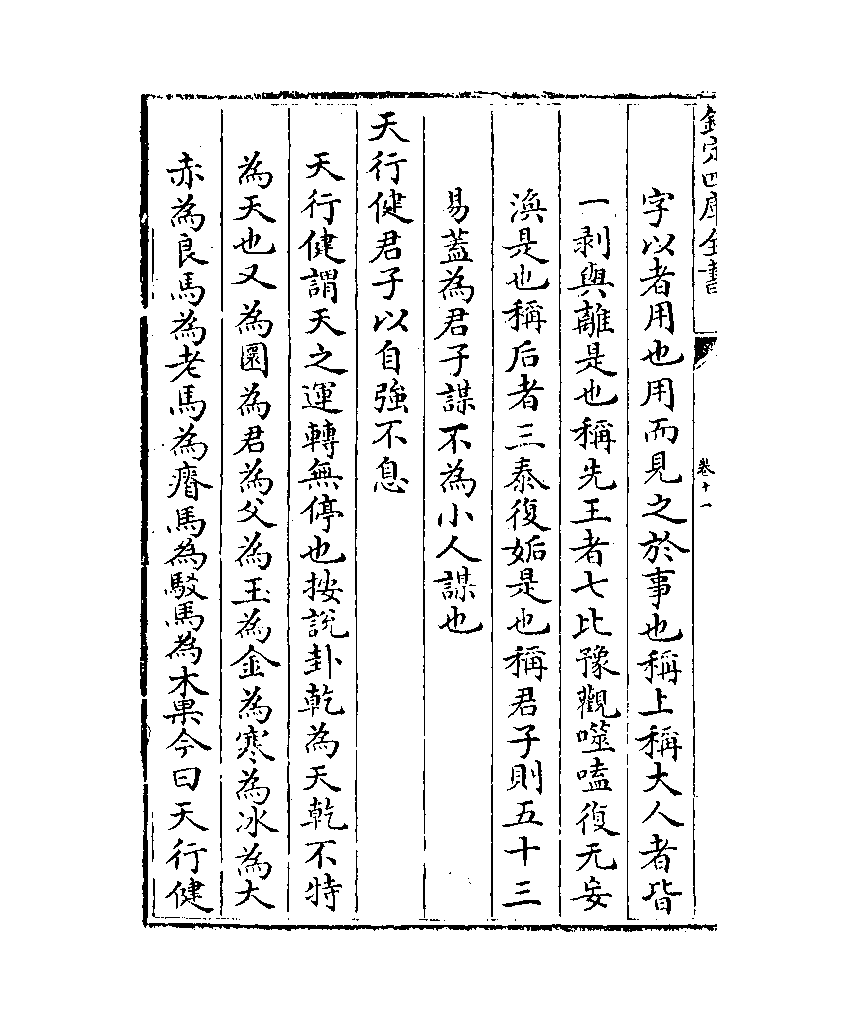 欽定四庫全書
卷十一
字以者用也用而見之於事也稱上稱大人者皆
一剥與離是也稱先王者七比豫觀噬嗑復无妄
渙是也稱后者三泰復姤是也稱君子則五十三
易蓋為君子謀不為小人謀也
天行健君子以自強不息
天行健謂天之運轉無停也按說卦乾為天乾不特
為天也又為圜為君為父為玉為金為寒為冰為大
赤為良馬為老馬為瘠馬為駁馬為木果今曰天行健